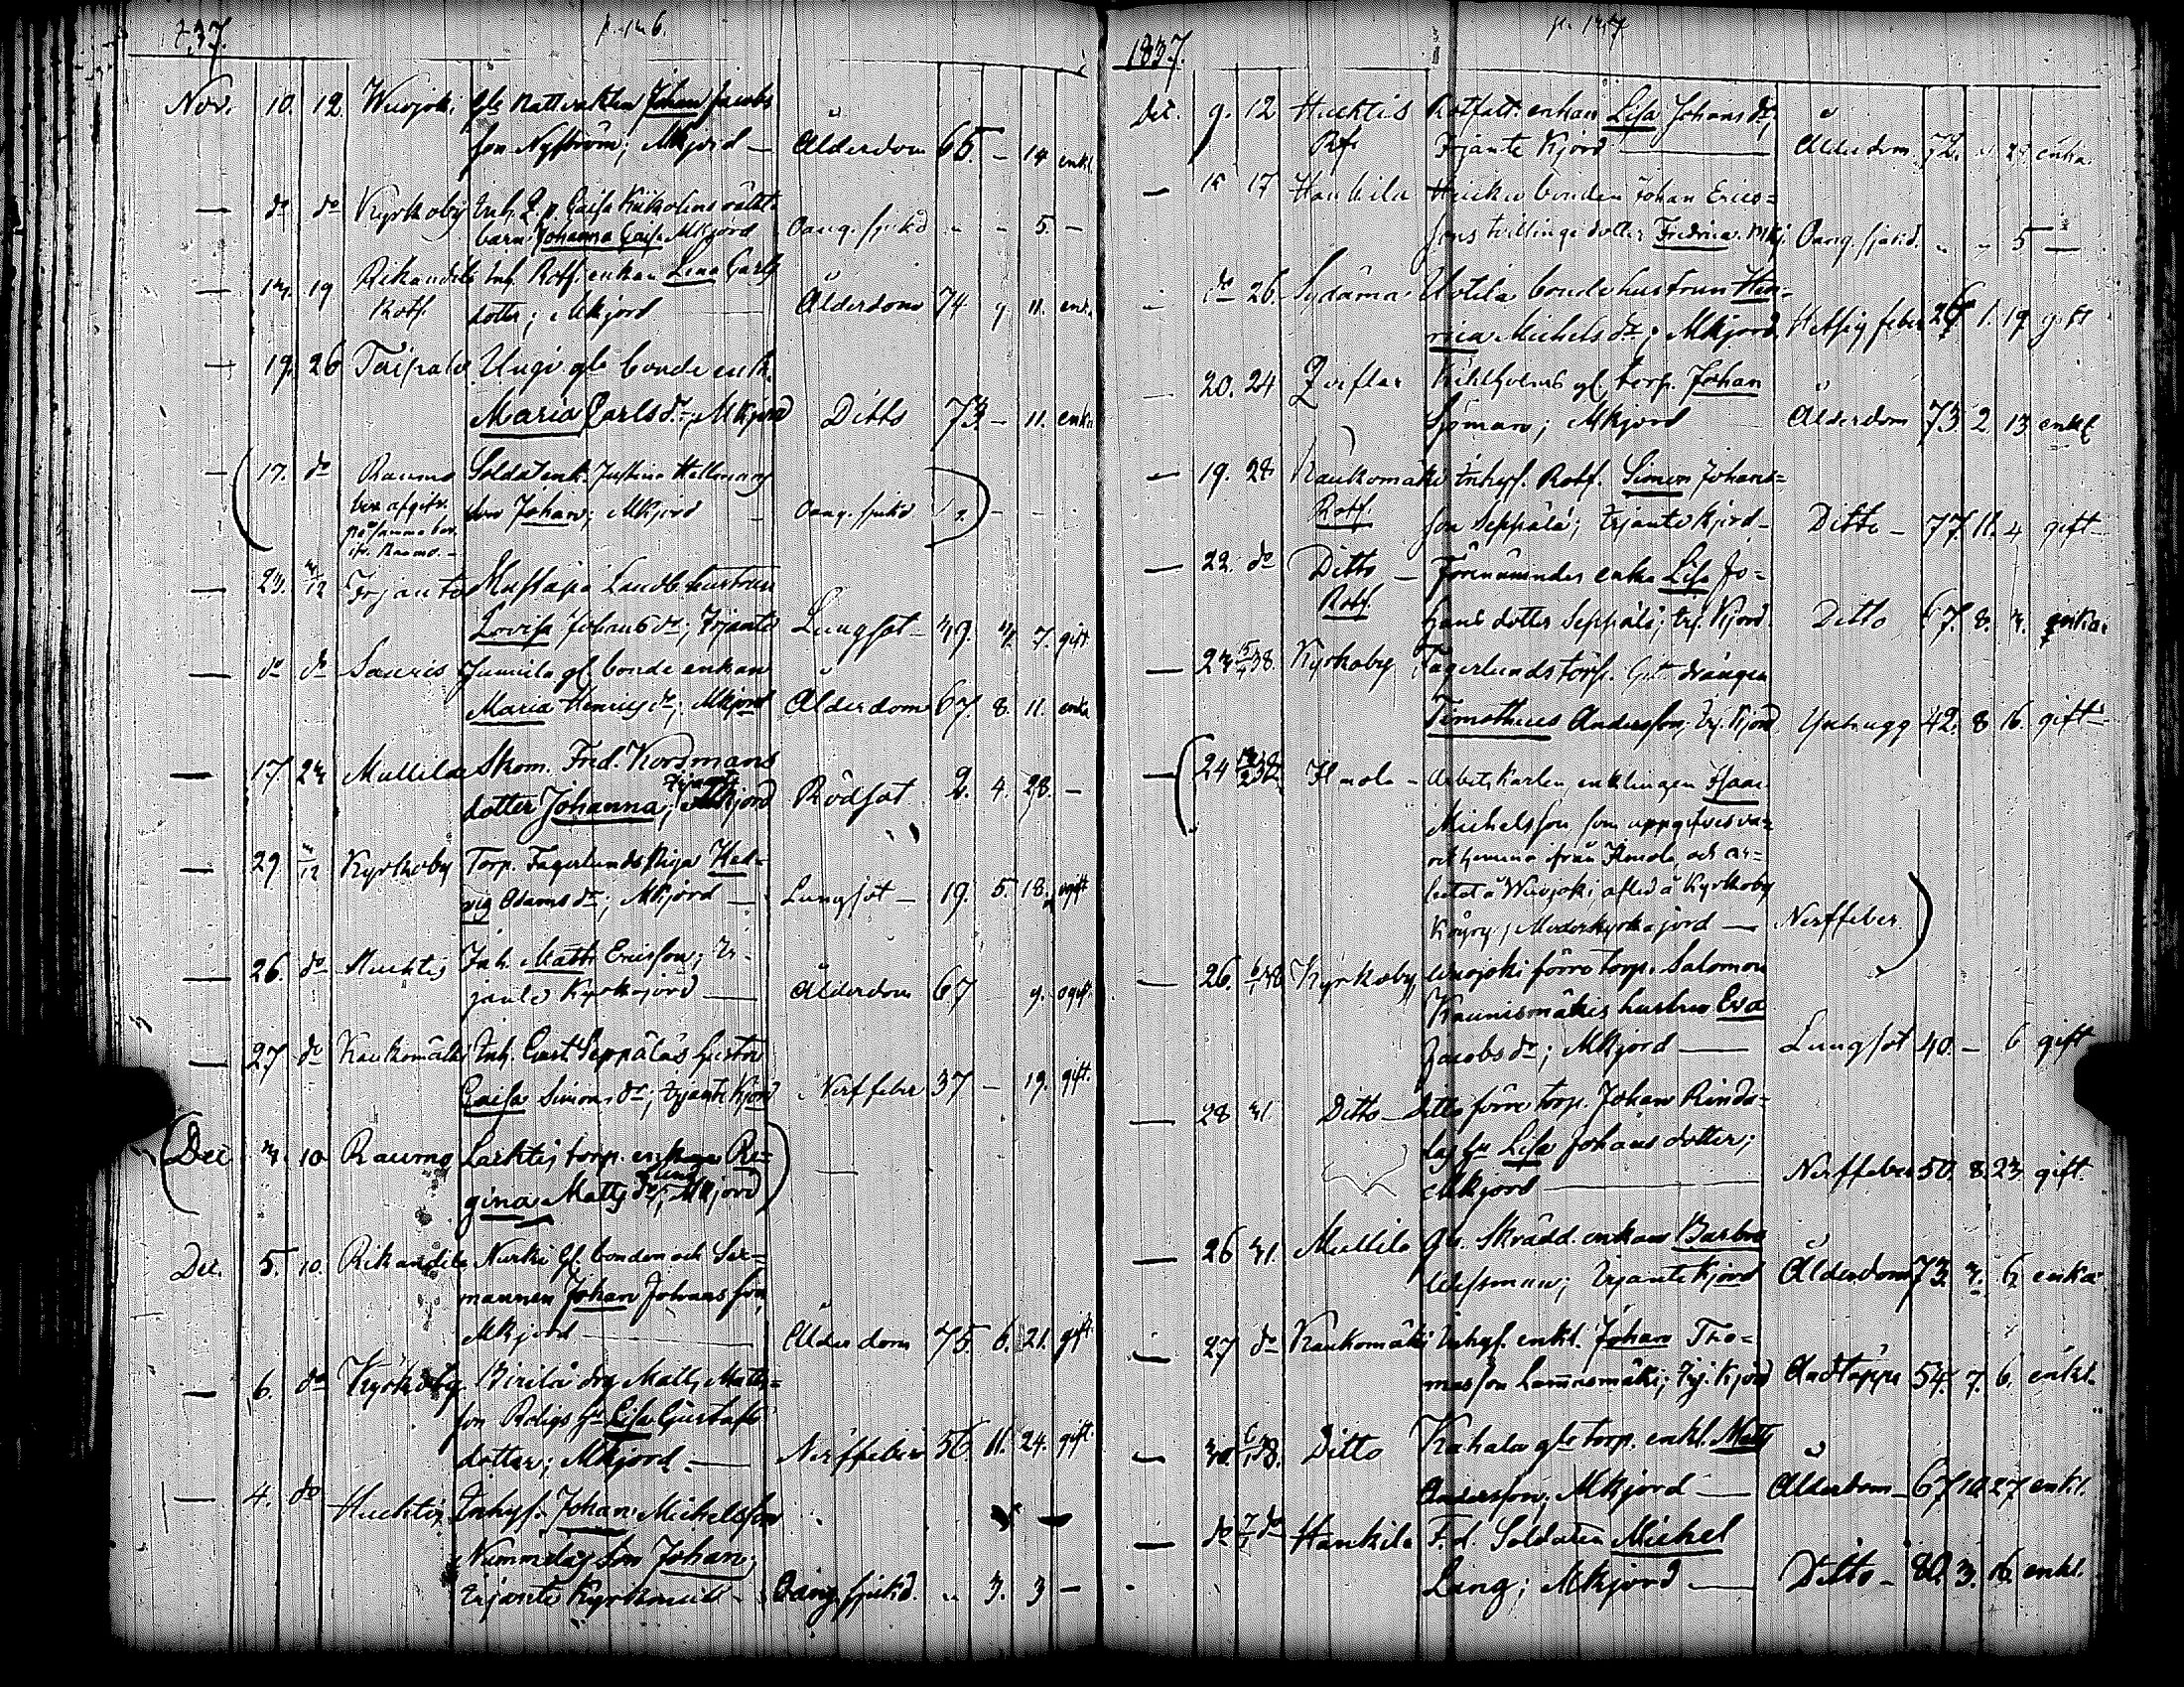 1837.
Nov. 10. 12. Wuojoki Gle Nattvakten Johan Jacobs
son Nyström; MKjord — Ålderdom 65. – 14 enkl.
— do do Kyrkoby Inh. Q. p. Caisa Kiikolins oäkt.
barn Johanna Caisa MKjord Oang. sjukd. „ „ 5. –
— 17. 19 Rikandila Inh. Rotf. enkan Lena Carls
Rotf. dotter; MKjord — Ålderdom 74. 9. 11. enka
— 19. 26 Taipale gle bonde enk.
Maria Carlsdr; MKjord Ditto 73. – 11. enka
(17. do Raumo Soldatenk. Justina Hellmans
son Johan; MKjord – Oang. sjukd 2.) – –
på samma
— 23. 3/12 Irjanto Landb. hustrun
Lovisa Johansdr; Irjanto Lungsot – 39. 3. 7. gift
— do do Sauris Jumila gl. bonde enkan
Maria Henricsdr; MKjord Ålderdom 67. 8. 11. enka
— 17. 23 Mullila Skom. Fred. Korsmans
dotter Johanna; Kjord Rödsot 2. 4. 28. –
— 29 3/12 Kyrkoby Torp. Fagerlunds Piga Hed-
vig Adamsdr; MKjord — Lungsot – 19. 5. 18. ogift
— 26. do Huchtis Inh. Matts Ericsson; Ir-
janto Kyrkojord — Ålderdom 67 9. ogift.
— 27 do Kaukomäki Inh. Gust. Seppäläs hustru
Caisa Simonsdr; Irjanto Kjord Nerffeber 37 – 19. gift.
(Dec 3. 10 Raumo Lachtis torp. enkan Re-
gina Mattsdr; MKjord) —
Dec. 5. 10. Rikandila Nurki Gl. bonden och Sex-
mannen Johan Johansson,
MKjord — Ålderdom 75. 6. 21. gift.
— 6. do Kyrkoby Birilä drg Matts Matts-
son Roligs hu Lisa Gustafs
dotter; MKjord. — Nerffeber 56. 11. 24. gift.
— 4. do Huchtis Inhys. Johan Michelsson
Nummelas son Johan;
Irjanto – Oang. sjukd. „ 3. 3 –
1837.
Dec. 9. 12 Huchtis Rotfatt. enkan Lisa Johansdr,
Rotf. Irjanto Kjord — Ålderdom. 72. enka
— 15 17 Hankila Heickus bonden Johan Erics-
sons tvillinge dotter Fredrica. MKj. Oang. sjukd. „ „ 5 —
— do 26. Sydänmaa Uotila bondehustrun Hen-
rica Michelsdr; MKjord. Hetsig feber 26 1. 19. gift
— 20. 24 Kihlholms gl. torp. Johan
Sjöman; MKjord Ålderdom 73. 2. 13 enkl.
— 19. 28 Kaukomäki Inhys. Rotf. Simon Johans-
Rotf. son Seppälä; Irjanto Kjord – Ditto – 77. 11. 4 gift –
— 22. do Ditto – Förenämndes enka Lisa Jo-
Rotf. hans dotter Seppälä; Irj. Kjord. Ditto 67. 8. 3. enka.
— 23 5/1 38. Kyrkoby Fagerlunds torp. drängen
Timotheus Andersson; Irj. Kjord 42. 8 16. gift –
—(24 38. Ilmola – Arbetskarlen, enklingen Isaac
Michelsson som uppgifves va-
rit hemma ifrån Ilmola, och ar-
betat å Wuojoki afled å Kyrkoby
Moderkyrkojord — Nerffeber.)
— 26. 6/1 38 Kyrkoby Wuojoki förre torp. Salomon
Kaunismäkis hustru Eva
Jacobsdr; MKjord — Lungsot 40. – 6 gift
— 28 31 Ditto – Ditto förre torp. Johan Rinda-
las hu Lisa Johans dotter;
MKjord — Nerffeber 50. 8. 23. gift.
— 26 31. Mullila Gle. Skrädd. enkan Barbro
Wessman; Irjanto Kjord Ålderdom 73. 3. 6. enka
— 27 do Kaukomäki Inhys. enkl. Johan Tho-
masson Lamnsmäki; Irj. Kjord Andtäppa 54. 7. 6. enkl.
— 30. 6/1 38. Ditto Kahala gle torp. enkl. Matts
Andersson; MKjord — Ålderdom – 67 10. 27 enkl.
— do 7/1 do Hankila F.d. Soldaten Michel
Lång; MKjord — Ditto – 80. 3. 16. enkl.